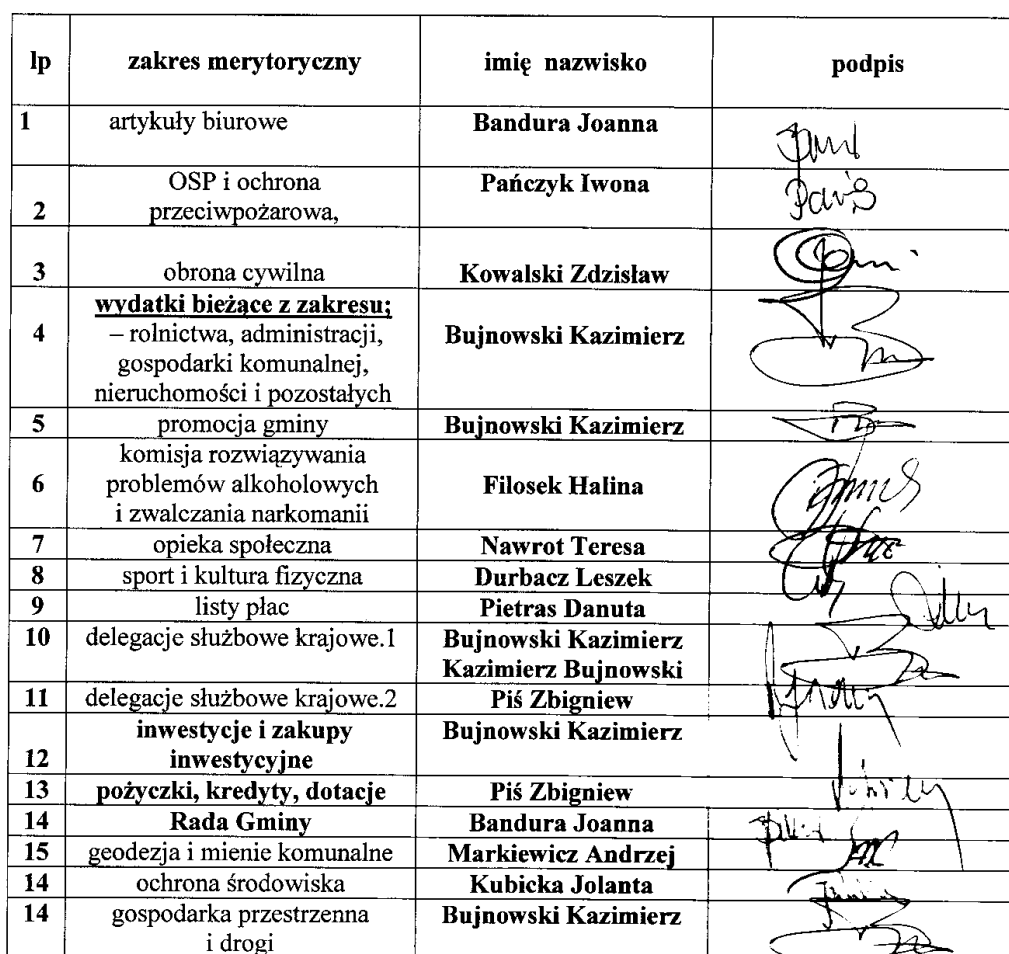 lp zakres merytoryczny imię nazwisko podpis
1 artykuły biurowe Bandura Joanna
OSP i ochrona Pańczyk Iwona
2 przeciwpożarowa,
3 obrona cywilna Kowalski Zdzisław
wydatki bieżące z zakresu;
4 – rolnictwa, administracji, Bujnowski Kazimierz
gospodarki komunalnej,
nieruchomości i pozostałych
5 promocja gminy Bujnowski Kazimierz
komisja rozwiązywania
6 problemów alkoholowych Filosek Halina
i zwalczania narkomanii
7 opieka społeczna Nawrot Teresa
8 sport i kultura fizyczna Durbacz Leszek
9 listy płac Pietras Danuta
10 delegacje służbowe krajowe.1 Bujnowski Kazimierz
Kazimierz Bujnowski
11 delegacje służbowe krajowe.2 Piś Zbigniew
inwestycje i zakupy Bujnowski Kazimierz
12 inwestycyjne
13 pożyczki, kredyty, dotacje Piś Zbigniew
14 Rada Gminy Bandura Joanna
15 geodezja i mienie komunalne Markiewicz Andrzej
14 ochrona środowiska Kubicka Jolanta
14 gospodarka przestrzenna Bujnowski Kazimierz
i drogi